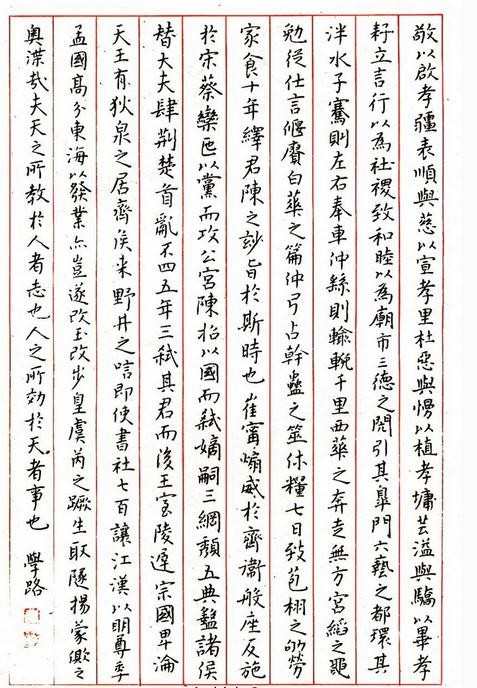 敬以啟孝疆表順與慈以宣孝里杜惡與慢以植孝墉芸溢與驕以畢孝
耔立言行以為社禝致和睦以為廟市三德之閎引其皋門六藝之都環其
泮水子騫則左右奉車仲繇則輸輓千里西華之奔走無方宮縚之黽
勉從仕言偃賡白華之篇仲弓占幹蠱之筮休糧七日致苞栩之劬勞
家食十年繹君陳之妙旨於斯時也崔甯煽威於齊衛般座反施
於宋蔡欒以黨而攻公宮陳招以國而弒嫡嗣三綱頹五典盭諸侯
替大夫肆荊楚首亂不四五年三弒其君而後王室陵遲宗國卑淪
天王有狄泉之居齊侯來野井之唁即使書社七百讓江漢以明尊季
孟國高分東海以發業亦豈遂改玉改步皇虞芮之蹶生取隧揚蒙之
奧渫哉夫天之所教於人者志也人之所効於天者事也 學路